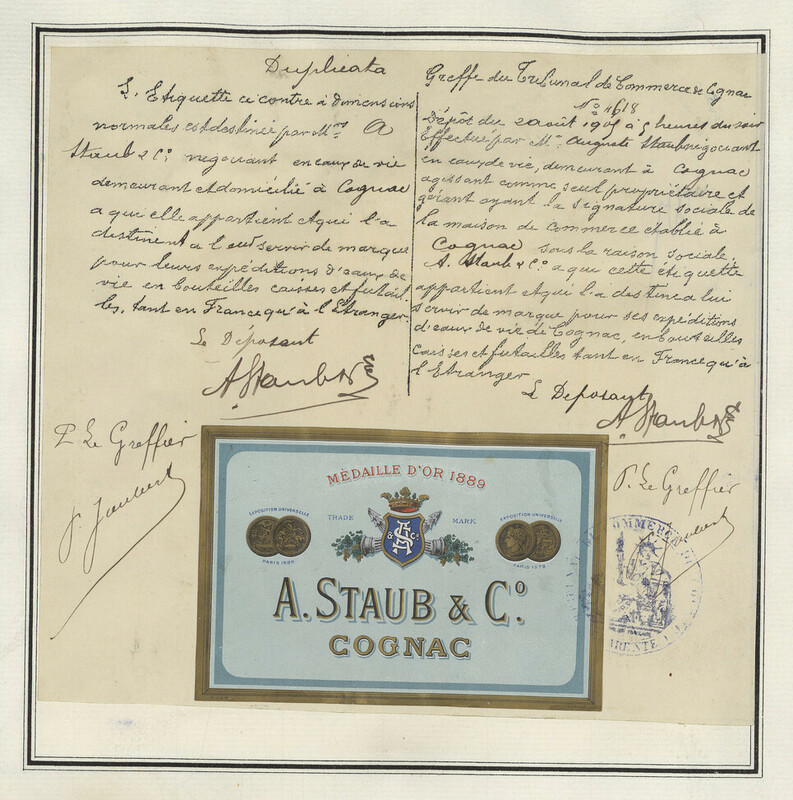 Duplicata
L'Etiquette ci contre à dimensions
normales est destinée par Mrs A
Staub & Co negociant en eaux de vie
demeurant et domicilié à Cognac
a qui elle appartient et qui l'a
destine A a leur servir de marque
pour leurs expéditions d'eaux de
vie en bouteilles caisses et futail
les, tant en France qu'à l'Etranger
Le Déposant
A Staub & Co
P Le Greffier
P. Jaubert
Greffe du Tribunal de Commerce de Cognac
No 4618
Dépôt du 2 août à 5 heures du soir
Effectué par Mr Auguste Staub négociant
en eaux de vie, demeurant à Cognac
agissant comme seul propriétaire et
gérant ayant la signature sociale de
la maison de commerce établie à
Cognac sous la raison sociale
A. Staub & Co a qui cette étiquette
appartient et qui l'a destine a lui
servir de marque pour ses expéditions
d'eaux de vie de Cognac, en bouteilles
caisses et futailles tant en France qu'à
l'Etranger
Le Déposant
A Staub & Co
P. Le Greffier
Jaubert
MÉDAILLE D'OR 1889
EXPOSITION UNIVERSELLE
PARIS
TRADE MARK
AS & Co
EXPOSITION UNIVERSELLE
PARIS 1878
A. STAUB & Co.
COGNAC
COMMERCE